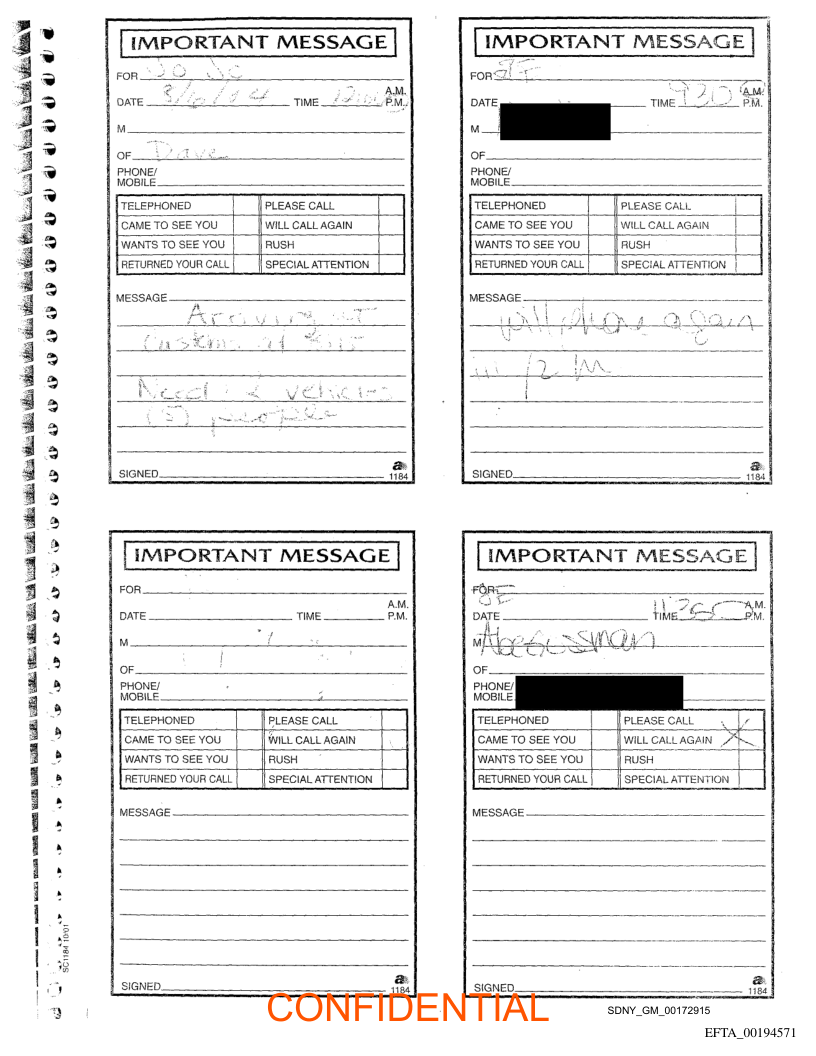 IMPORTANT MESSAGE
FOR Jo Jo
A.M.
DATE 3/6/04 TIME P.M.
M
OF Dave
PHONE/
MOBILE
TELEPHONED PLEASE CALL
CAME TO SEE YOU WILL CALL AGAIN
WANTS TO SEE YOU RUSH
RETURNED YOUR CALL SPECIAL ATTENTION
MESSAGE
at
Customs at
Need 2 vehicles
(5) people
SIGNED
1184
IMPORTANT MESSAGE
FOR
A.M.
DATE TIME 930 P.M.
M
OF
PHONE/
MOBILE
TELEPHONED PLEASE CALL
CAME TO SEE YOU WILL CALL AGAIN
WANTS TO SEE YOU RUSH
RETURNED YOUR CALL SPECIAL ATTENTION
MESSAGE
will phone again
SIGNED
1184
IMPORTANT MESSAGE
FOR
A.M.
DATE TIME P.M.
M
OF
PHONE/
MOBILE
TELEPHONED PLEASE CALL
CAME TO SEE YOU WILL CALL AGAIN
WANTS TO SEE YOU RUSH
RETURNED YOUR CALL SPECIAL ATTENTION
MESSAGE
SIGNED
1184
IMPORTANT MESSAGE
FOR JE
A.M.
DATE TIME P.M.
M Abe Gussman
OF
PHONE/
MOBILE
TELEPHONED PLEASE CALL
CAME TO SEE YOU WILL CALL AGAIN X
WANTS TO SEE YOU RUSH
RETURNED YOUR CALL SPECIAL ATTENTION
MESSAGE
SIGNED
1184
SC1184 10/01
CONFIDENTIAL
SDNY_GM_00172915
EFTA_00194571